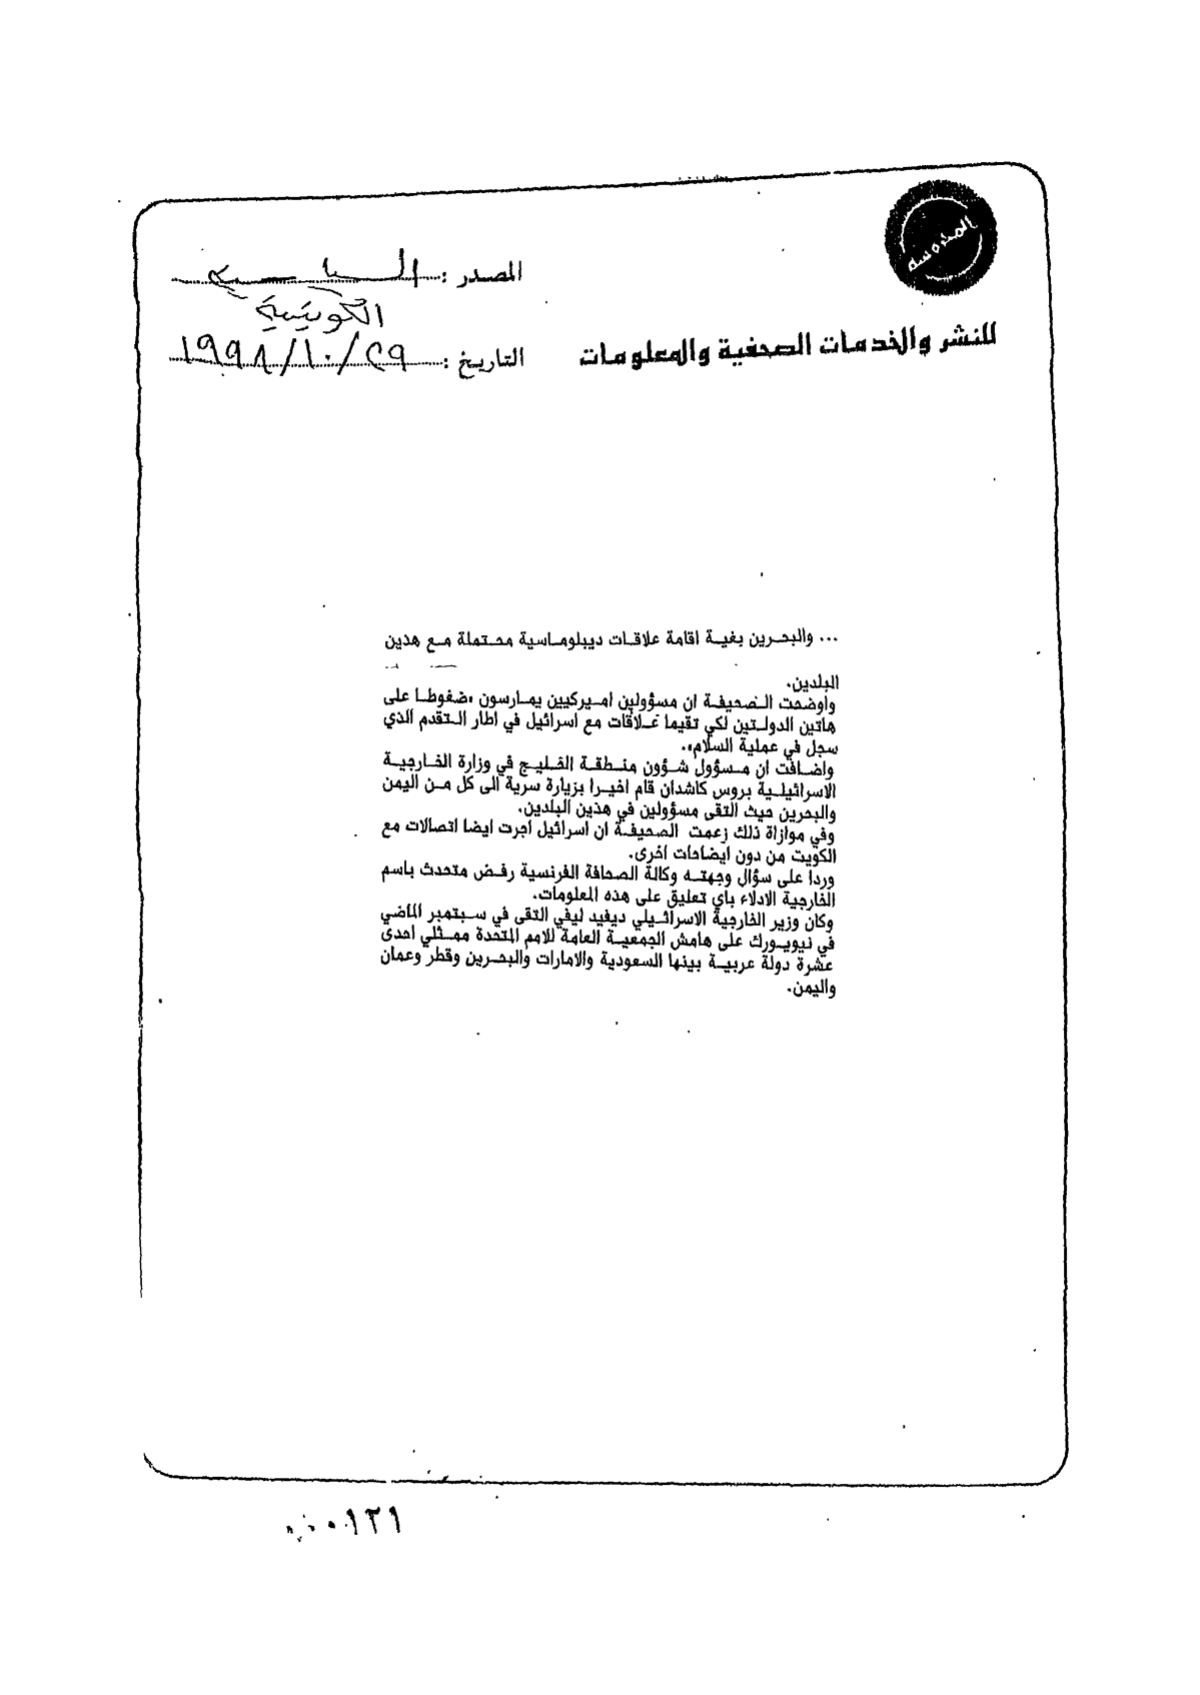 المحروسة
المصدر : السياسية
الكويتية
للنشر والخدمات الصحفية والمعلومات
التاريخ : ٢٩/١٠/١٩٩٨
... والبحرين بغية اقامة علاقات ديبلوماسية محتملة مع هذين
البلدين.
واوضحت الصحيفة ان مسؤولين اميركيين يمارسون «ضغوطا على
هاتين الدولتين لكي تقيما علاقات مع اسرائيل في اطار التقدم الذي
سجل في عملية السلام».
واضافت ان مسؤول شؤون منطقة الخليج في وزارة الخارجية
الاسرائيلية بروس كاشدان قام اخيرا بزيارة سرية الى كل من اليمن
والبحرين حيث التقى مسؤولين في هذين البلدين.
وفي موازاة ذلك زعمت الصحيفة ان اسرائيل اجرت ايضا اتصالات مع
الكويت من دون ايضاحات اخرى.
وردا على سؤال وجهته وكالة الصحافة الفرنسية رفض متحدث باسم
الخارجية الادلاء باي تعليق على هذه المعلومات.
وكان وزير الخارجية الاسرائيلي ديفيد ليفي التقى في سبتمبر الماضي
في نيويورك على هامش الجمعية العامة للامم المتحدة ممثلي احدى
عشرة دولة عربية بينها السعودية والامارات والبحرين وقطر وعمان
واليمن.